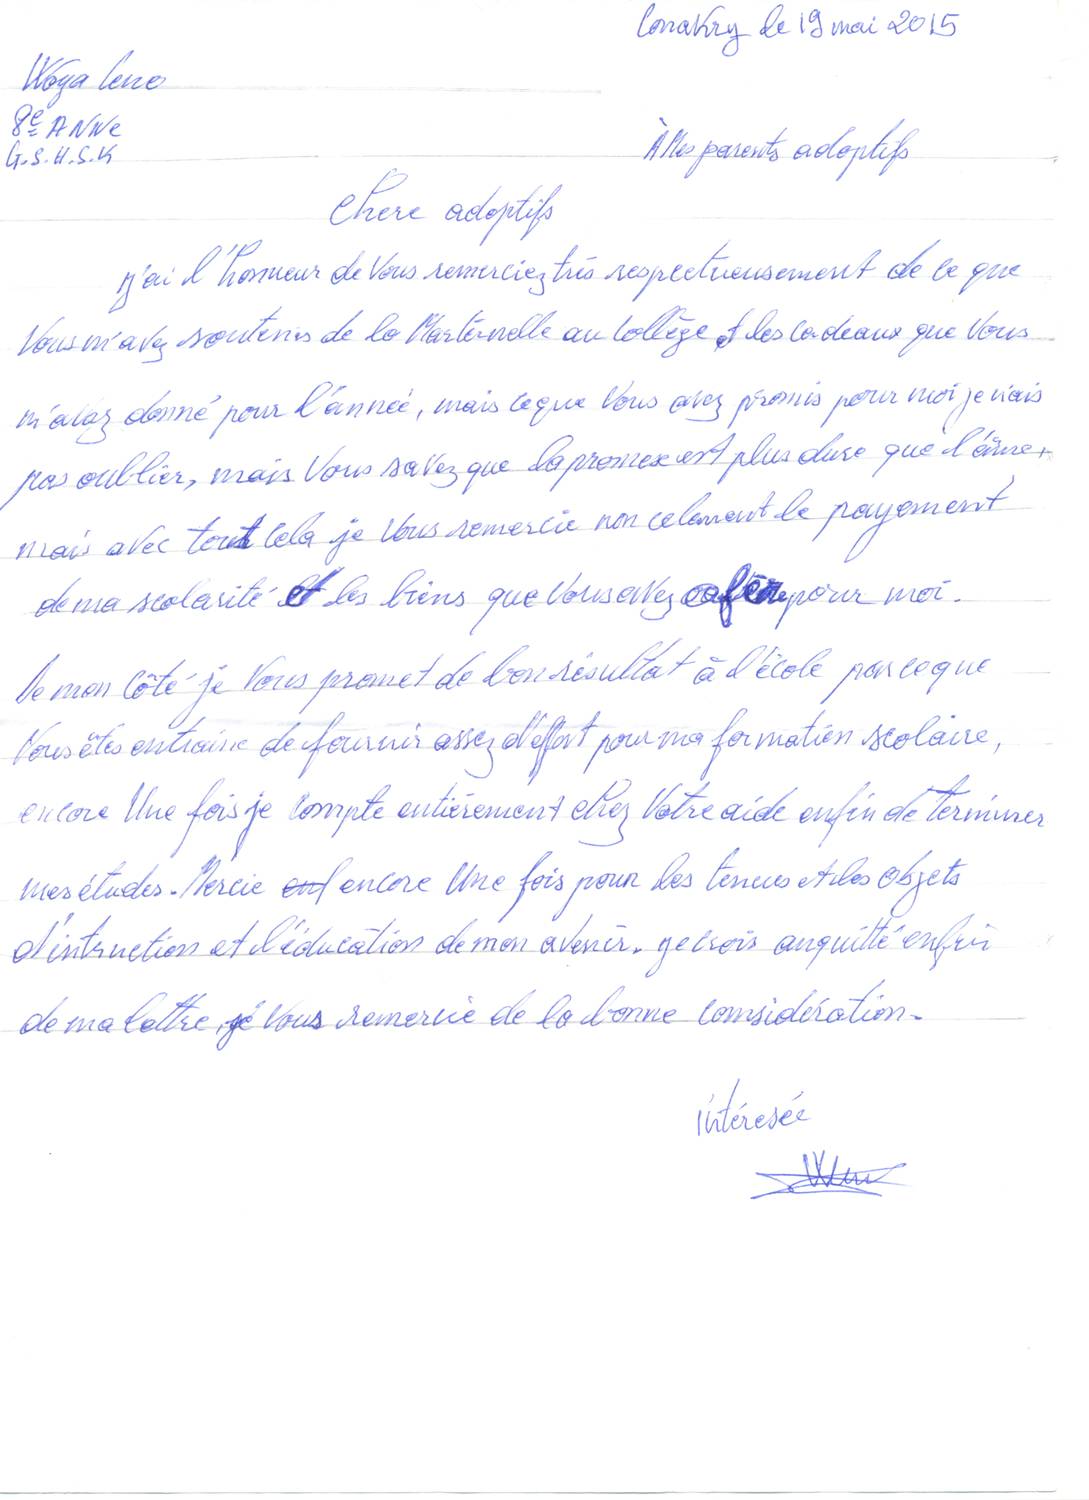 Conakry le 19 mai 2015
Woya Leno
8e ANNe
G.S.H.S.K
À Mes parents adoptifs
Chere adoptifs
j'ai l'honneur de Vous remerciez très respectueusement de ce que
Vous m'avez soutenis de la Marternelle au Collège et les cadeaux que Vous
m'avez donné pour l'année, mais ceque Vous avez promis pour moi je vais
pas oublier, mais Vous savez que la promex est plus dure que l'âme,
mais avec tout cela je Vous remercie non celement le payement
de ma scolarité et les biens que Vous avez pour moi.
De mon Côté je Vous promet de bon résultat à l'école parceque
Vous êtes entraine de fournir assez d'effort pour ma formation scolaire,
encore Une fois je compte entièrement chez Votre aide enfin de terminer
mes études. Mercie encore Une fois pour les tenues et les objets
d'intruction et l'éducation de mon avenir. je crois anquitté enfin
de ma lettre, je Vous remercie de la bonne considération.
Intéresée